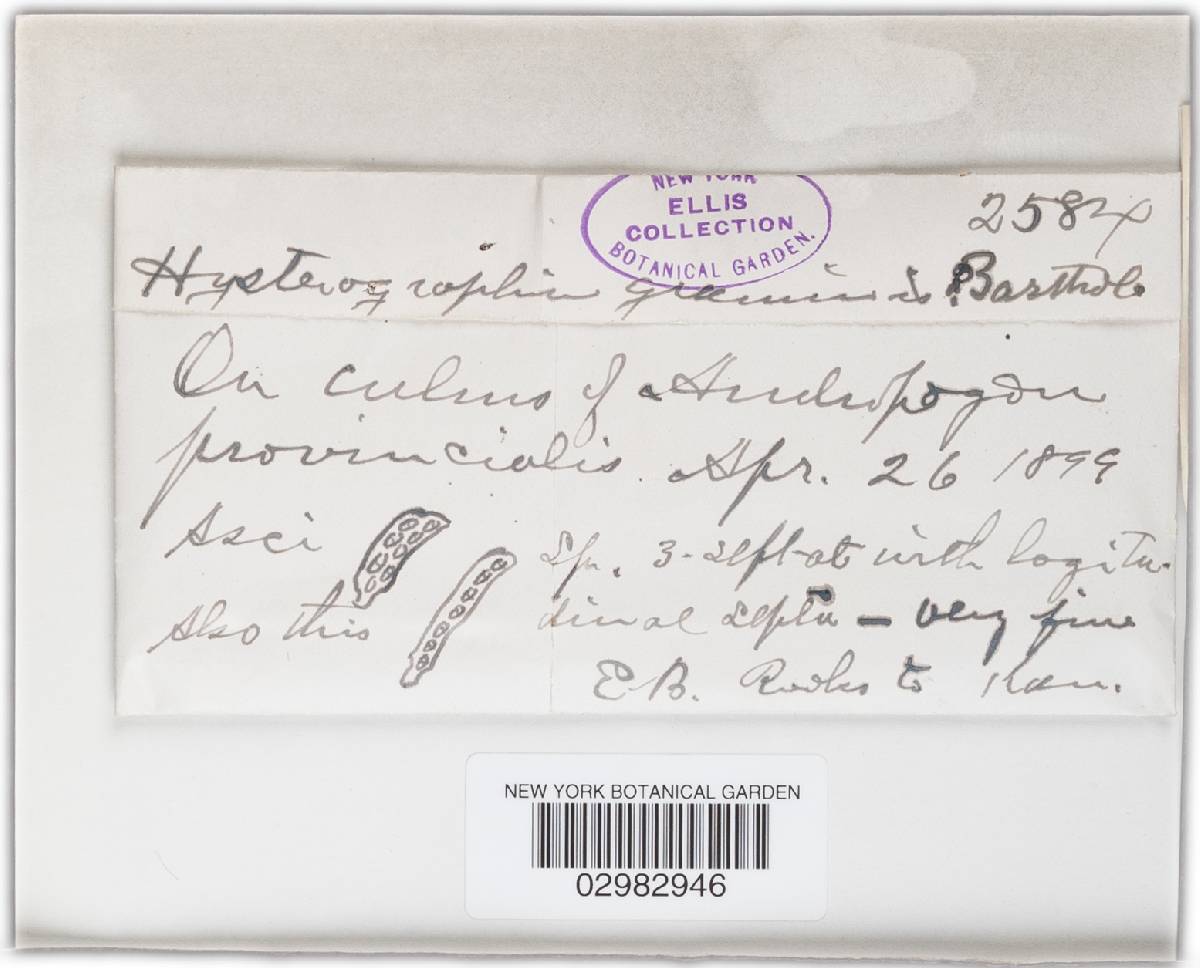 NEW YORK
ELLIS
COLLECTION
BOTANICAL GARDEN.
2584
Hysterographium graminis Barthol
On culms of Andropogon
provincialis. Apr. 26 1899
Asci
Sp. 3-septate with logitu-
Also this
dinal septa - very fine
E.B. Rooks Co Kan.
NEW YORK BOTANICAL GARDEN
02982946